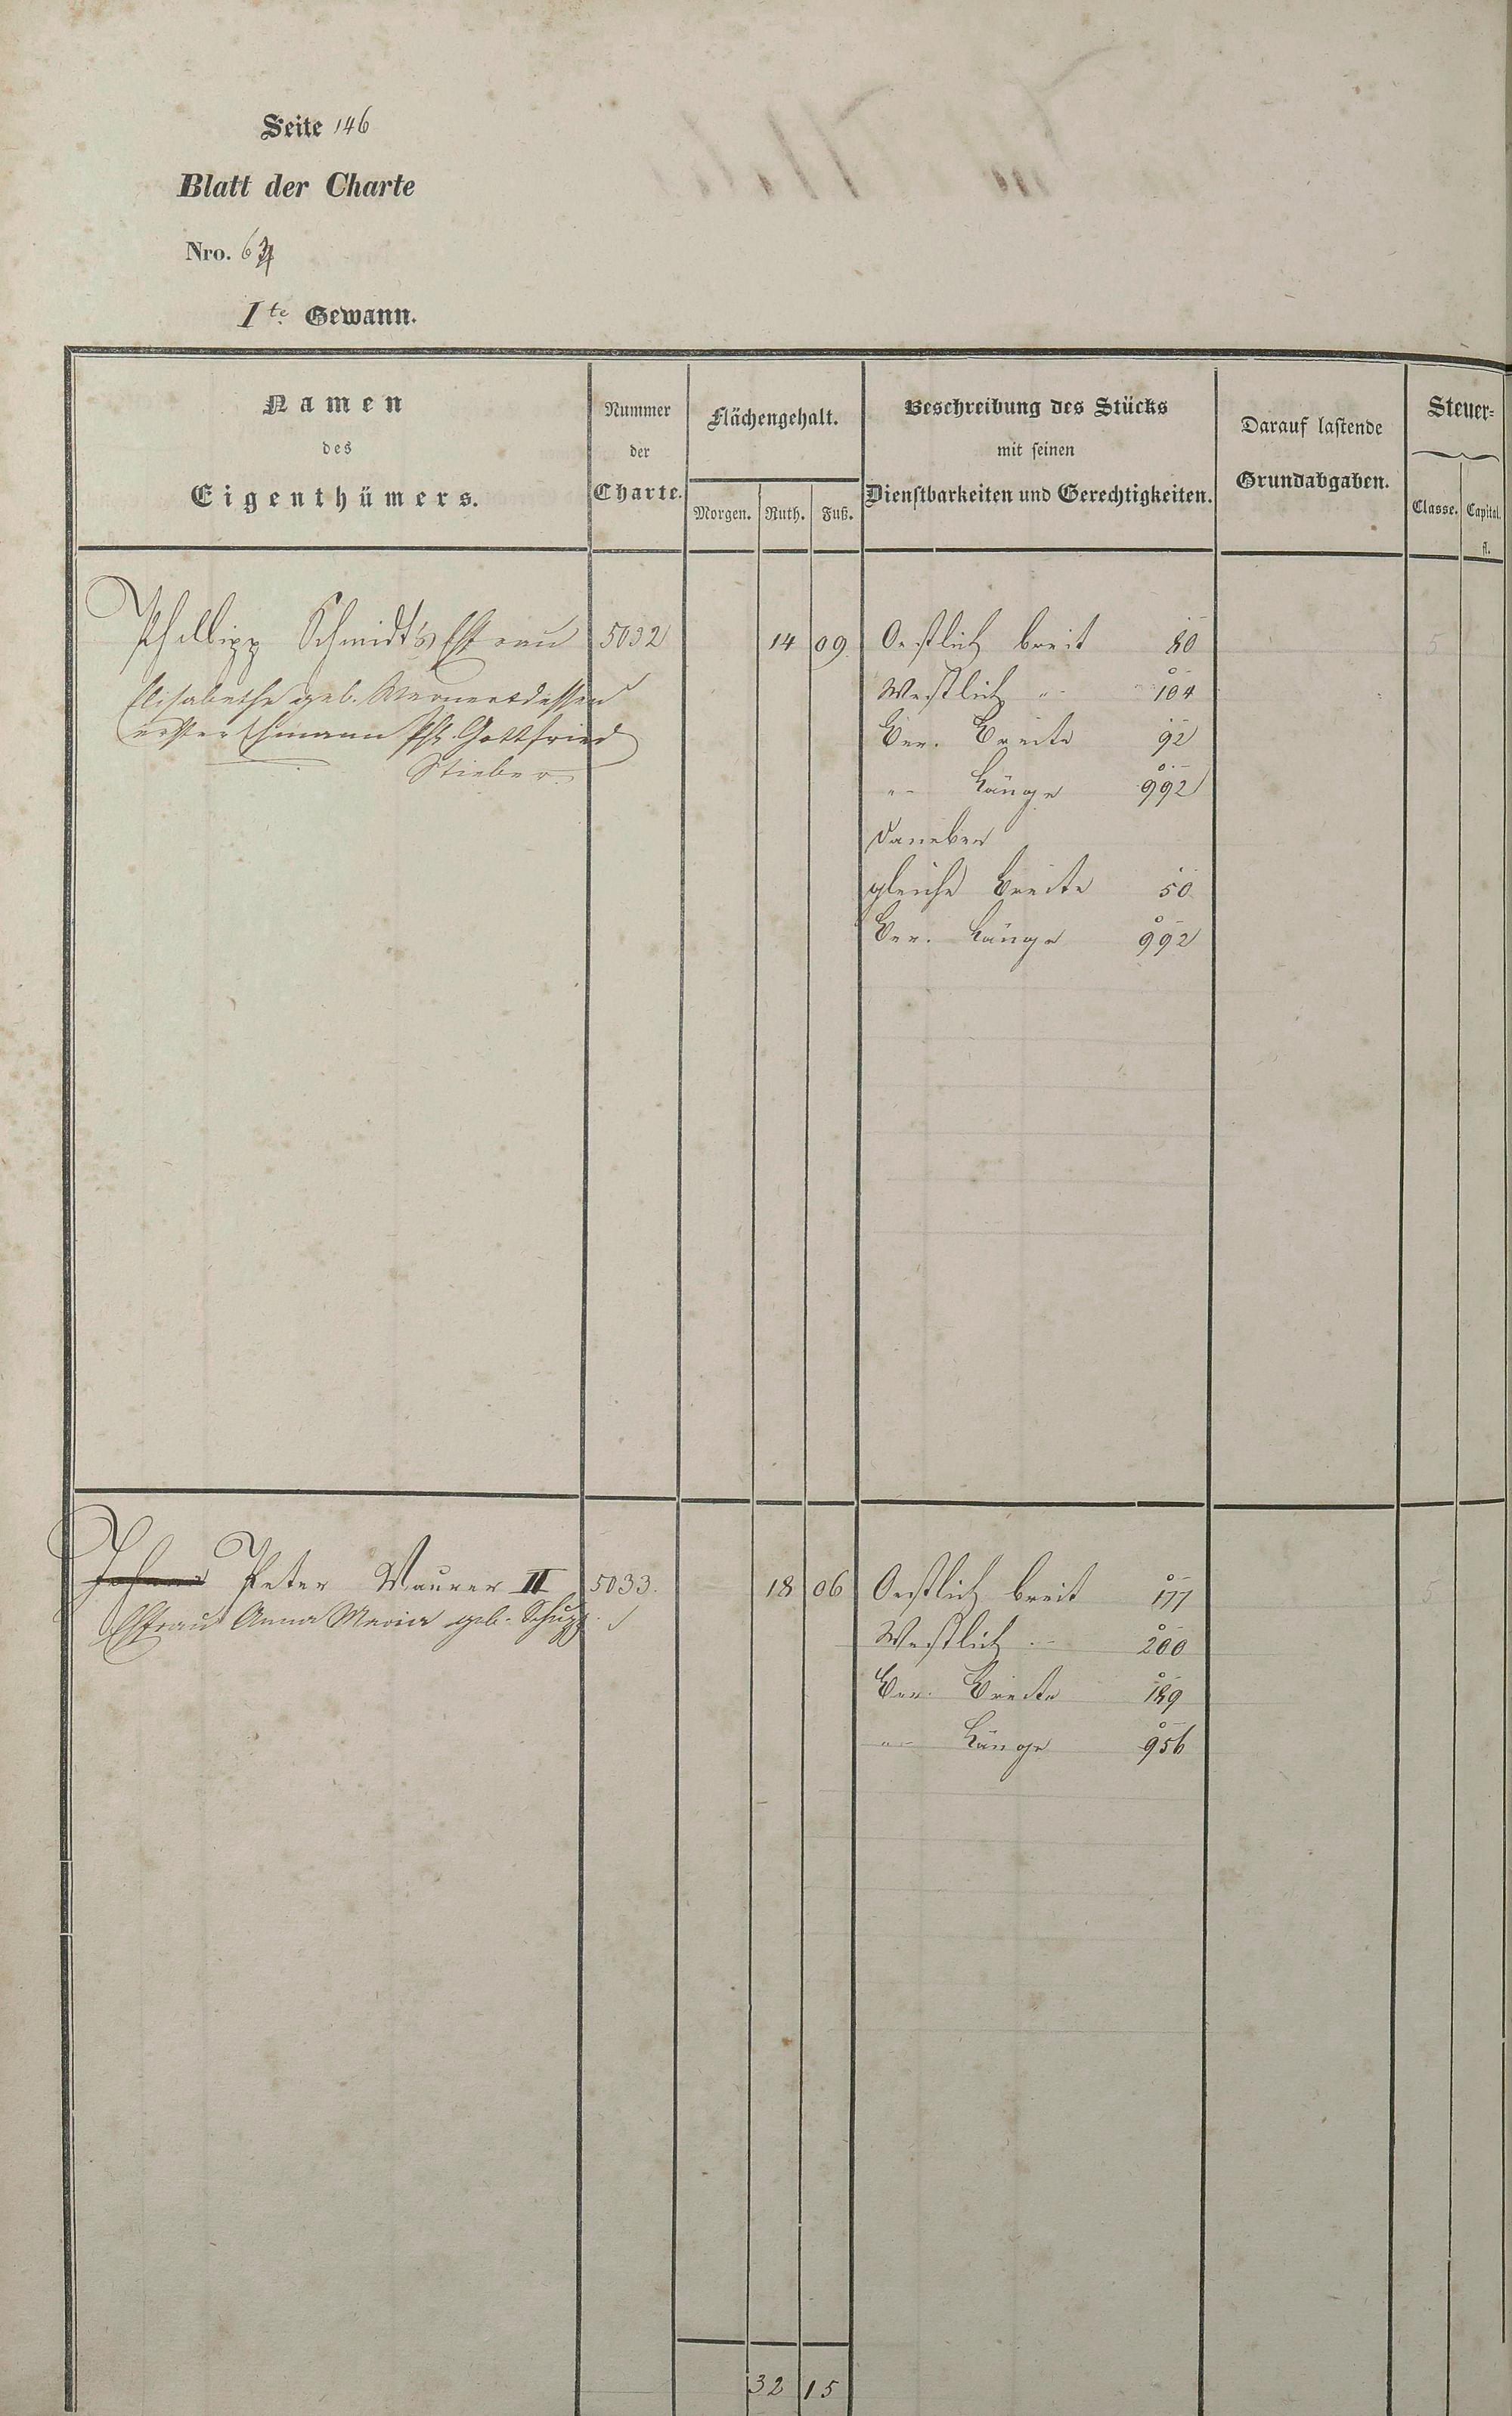 Seite 146
Blatt der Charte
Nro. 64
Ite Gewann.
Namen
des
Eigenthümers.
Nummer
der
Charte.
Flächengehalt.
Morgen. Ruth. Fuß.
Beschreibung des Stücks
mit seinen
Dienstbarkeiten und Gerechtigkeiten.
Darauf lastende
Grundabgaben.
Steuer=
Classe. Capital.
fl.
Philipp Schmidt's Ehfrau 5032 14 09 Oestlich breit 80 5
Elisabethe geb. dessen Westlich " 104
erster Ehmann Ph. Gottfried Ver. Breite 92
Stieber
" Länge 992
daneben
gleiche Breite 50
Ver. Länge 992
Johann Peter Maurer II 5033. 18 06 Oestlich breit 177 5
Ehfrau Anna Maria geb. Schupp Westlich " 200
Ver. Breite 189
" Länge 956
32 15